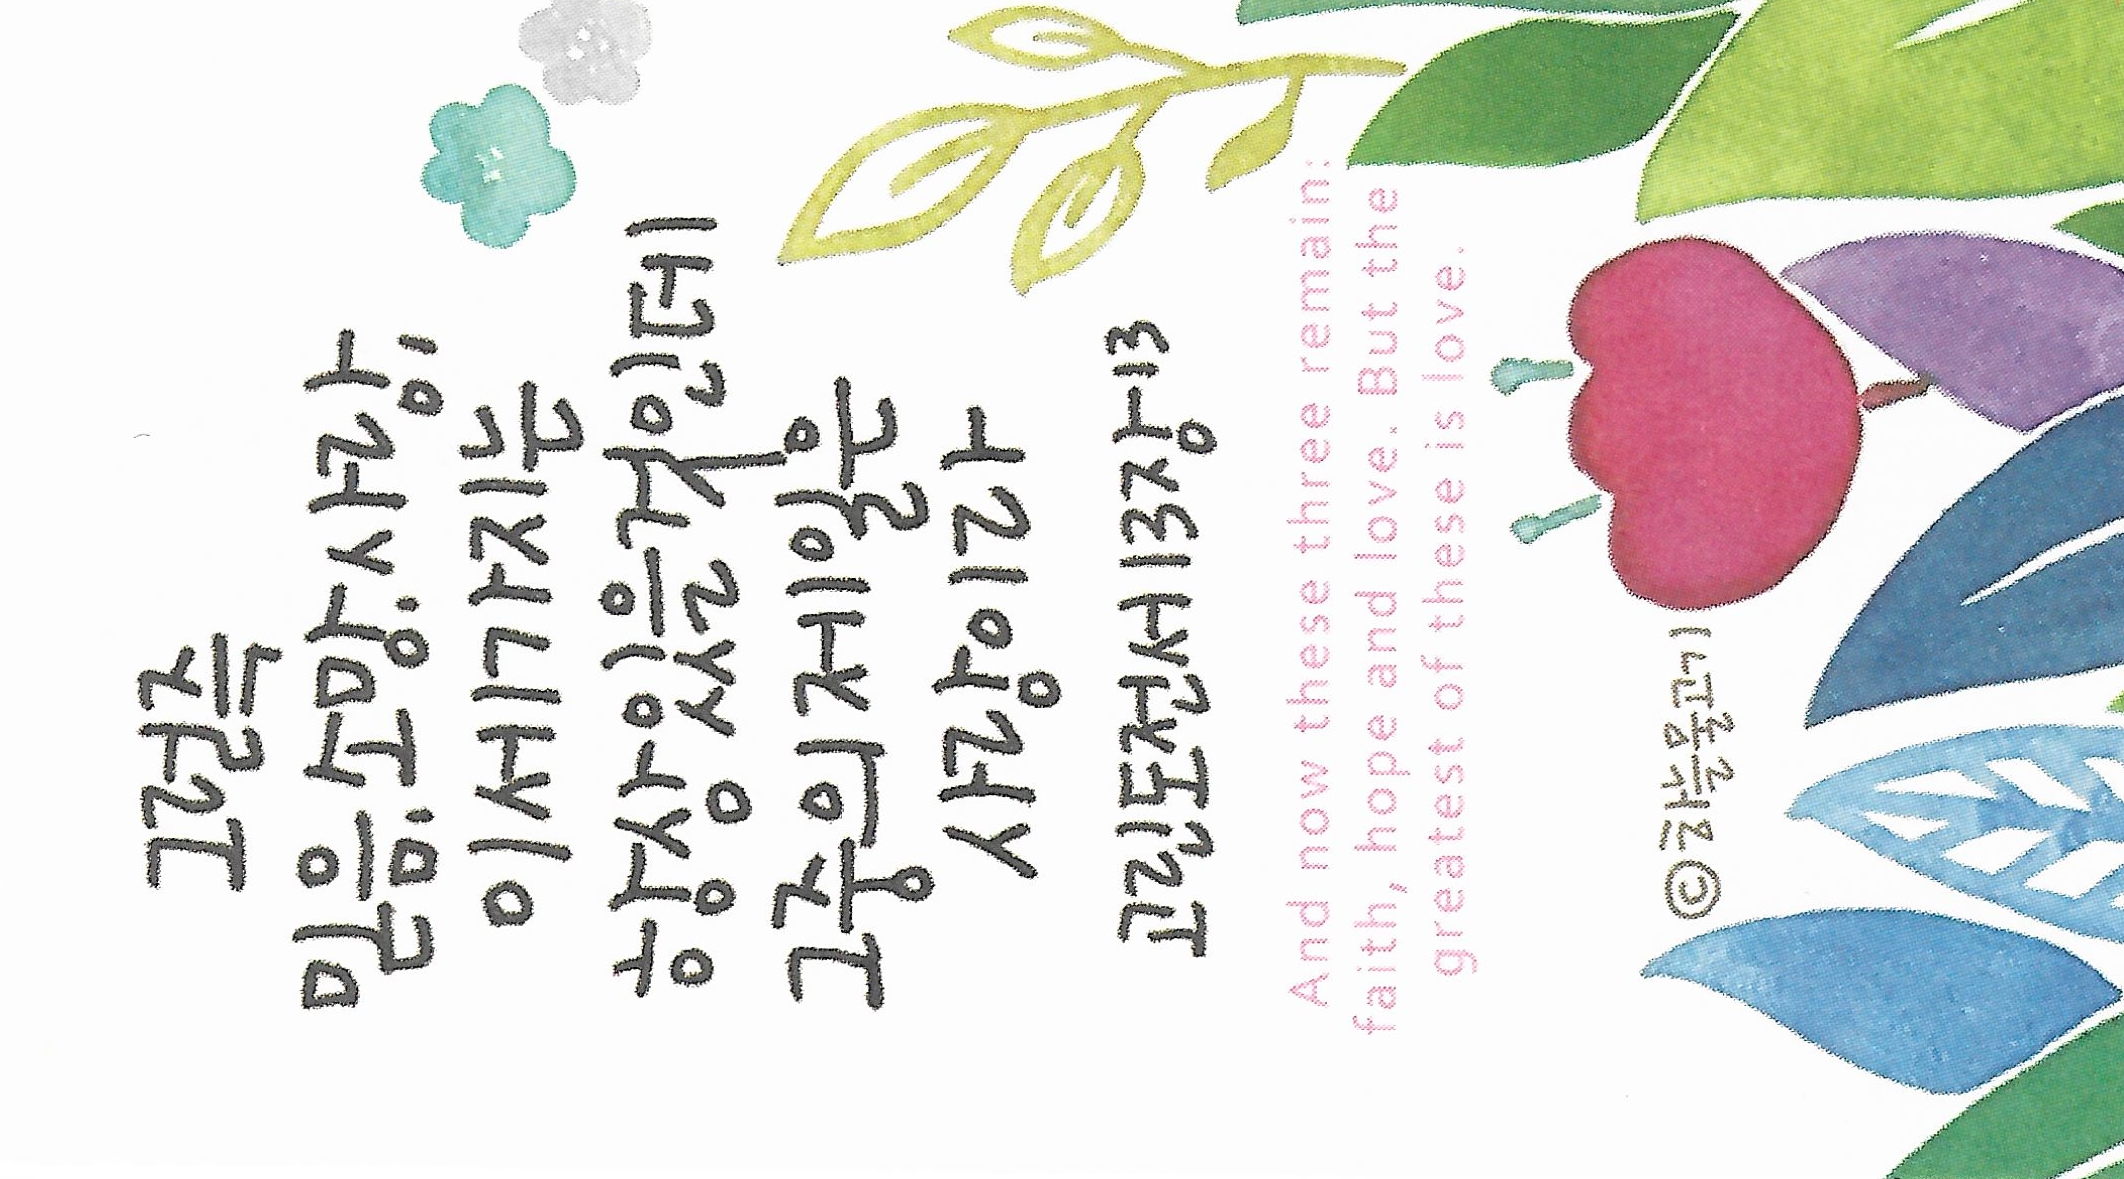 그런즉
믿음,소망,사랑,
이 세가지는
항상 있을것인데
그중의 제일은
사랑이라
고린도전서 13장 13
And now these three remain:
faith, hope and love. But the
greatest of these is love.
ⓒ 하늘물고기